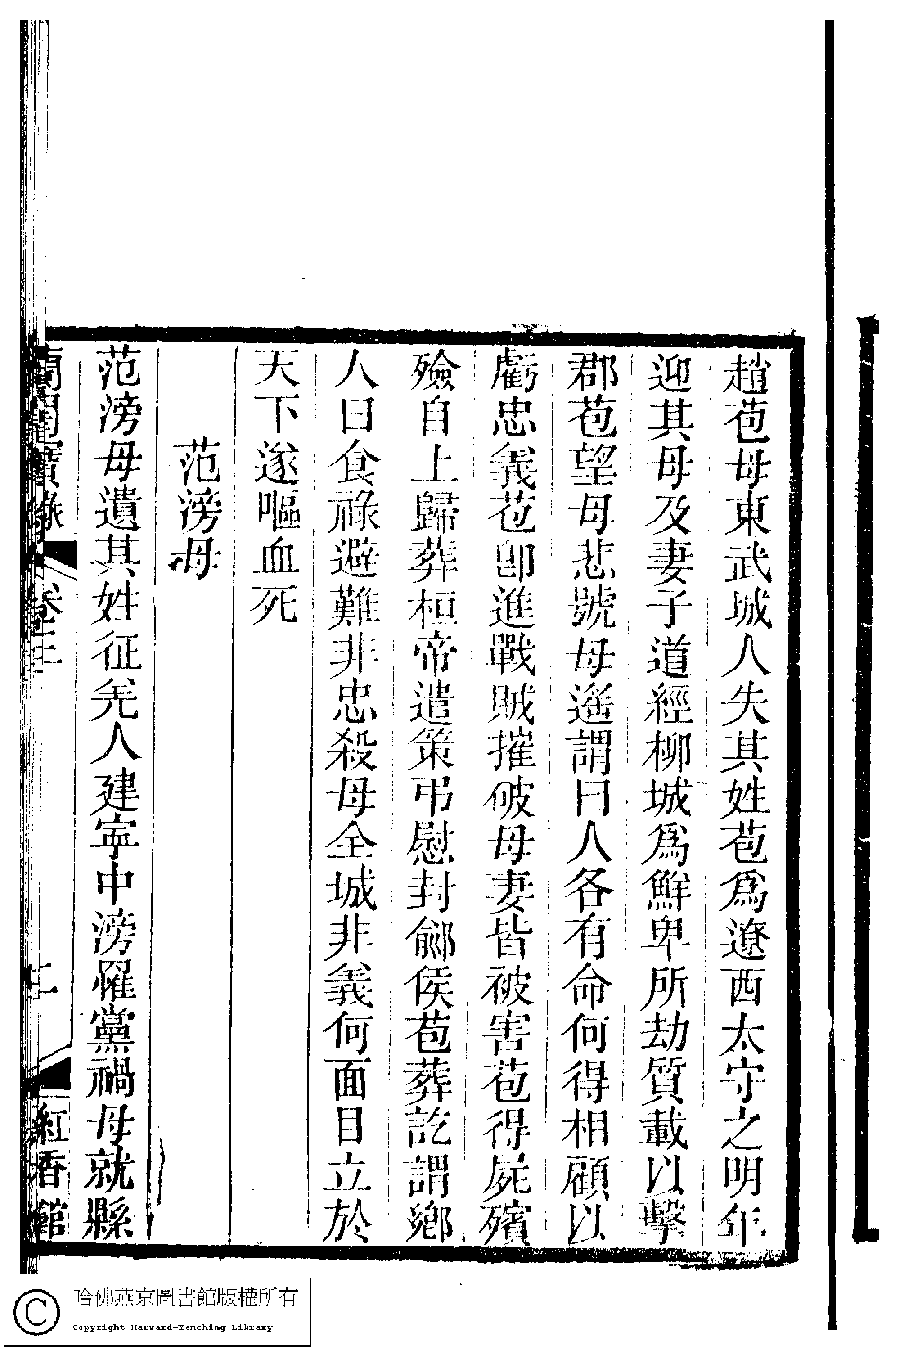 趙苞母東武城人失其姓苞爲遼西太守之明年
迎其母及妻子道經柳城爲鮮卑所劫質載以擊
郡苞望母悲號母遙謂曰人各有命何得相顧以
虧忠義苞卽進戰賊摧破母妻皆被害苞得屍殯
殮自上歸葬桓帝遣策弔慰封鄃侯苞葬訖謂鄉
人曰食祿避難非忠殺母全城非義何面目立於
天下遂嘔血死
范滂母
范滂母遺其姓征羌人建寧中滂罹黨禍母就縣
蘭閨寶錄 卷三 二 紅香館
哈佛燕京圖書館版權所有
Copyright Harvard-Yenching Library